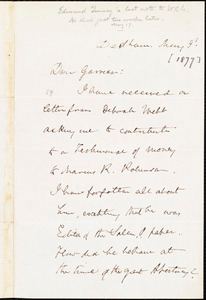 Edmund Quincy's last note to W.L.G.
He died just two weeks later.
May 17.
Dedham, May 3d.
[1877]
Dear Garrison:
I have received a
letter from Deborah Webb
asking me to contribute
to a Testimonial of money
to Marius R. Robinson.
I have forgotten all about
him, excepting that he was
Editor of the Salem, O. paper.
How did he behave at
the time of the great Apostacy,